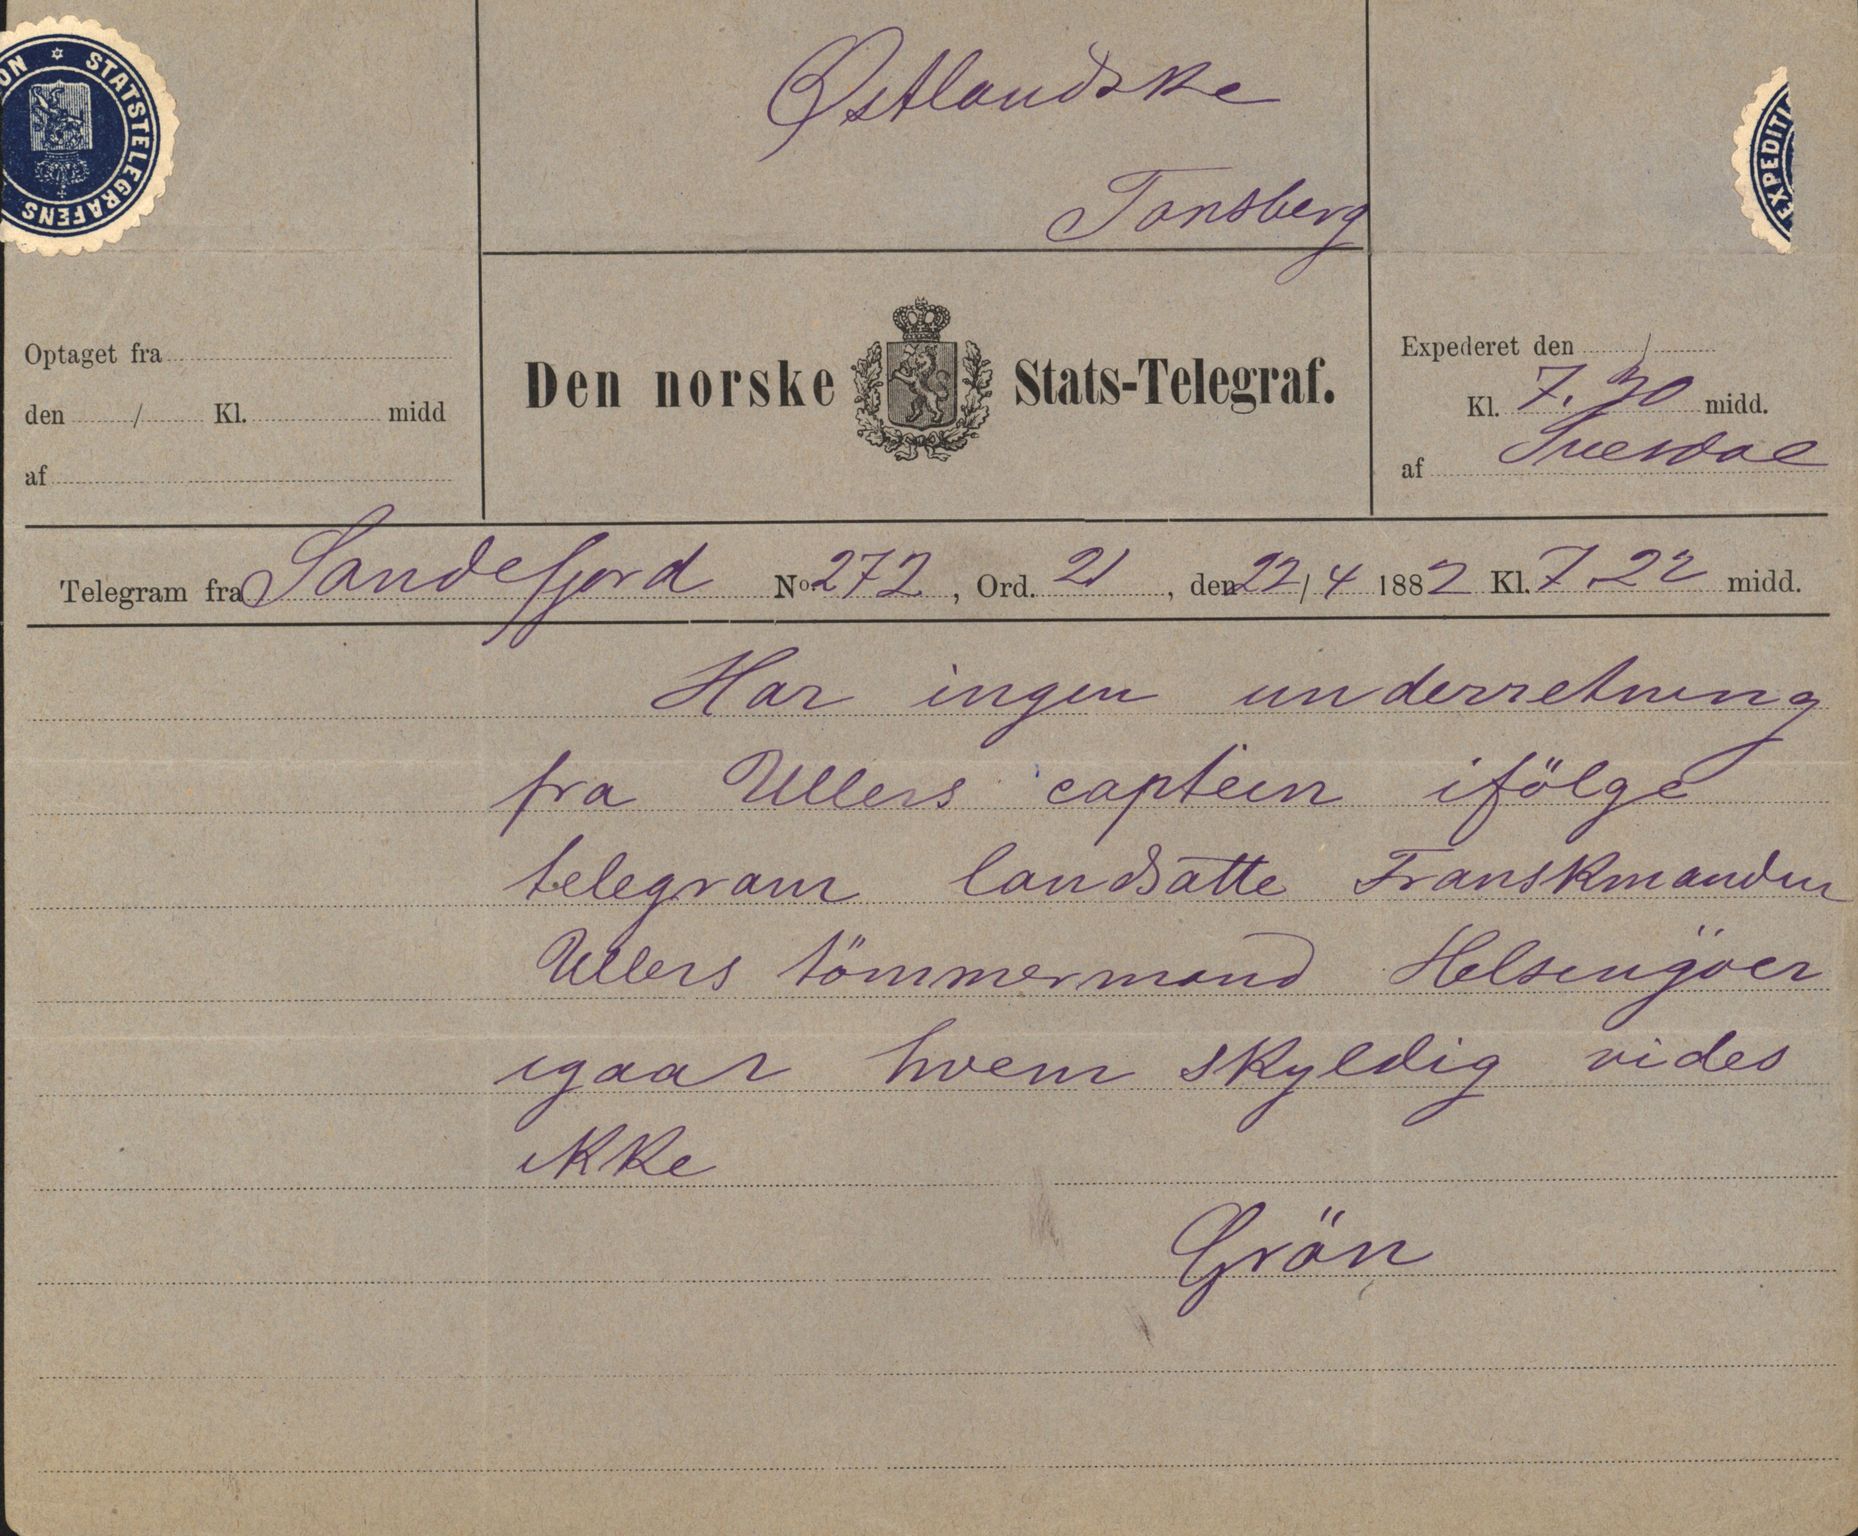 Østlandske
Tonsberg
STATSTELEGRAFENS
EXPEDITI
ON
Optaget fra
den / Kl. midd
af
Den norske Stats-Telegraf.
Expederet den /
Kl. 7.30 midd.
af
Telegram fra Sandefjord No. 272, Ord. 21, den 22/4 1882 Kl. 7.22 midd.
Har ingen underretning
fra Ullers captein ifölge
telegram landsatte Franskmanden
Ullers tömmermand Helsingöer
igaar hvem skyldig vides
ikke
Grön